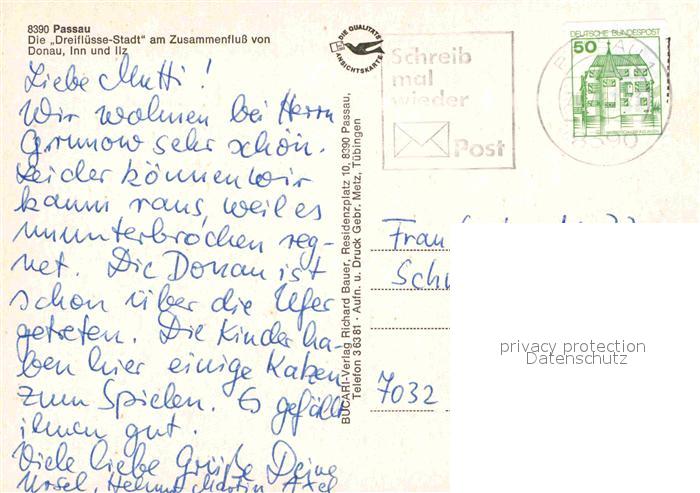 8390 Passau
Die „Dreiflüsse-Stadt" am Zusammenfluß von
Donau, Inn und Ilz
Liebe Mutti!
Wir wohnen bei Herrn
Grunow sehr schön.
Leider können wir
kaum raus, weil es
ununterbrochen reg-
net. Die Donau ist
schon über die Ufer
getreten. Die Kinder ha-
ben hier einige Katzen
zum Spielen. Es gefällt
ihnen gut.
Viele liebe Grüße Deine
Ursel, Helmut, Martin, Axel
BUCARI-Verlag Richard Bauer, Residenzplatz 10, 8390 Passau,
Telefon 36381 · Aufn. u. Druck Gebr. Metz, Tübingen
DIE QUALITÄTS
ANSICHTSKARTE
Schreib
mal
wieder
Post
DEUTSCHE BUNDESPOST
50
8390
Frau
7032
privacy protection
Datenschutz